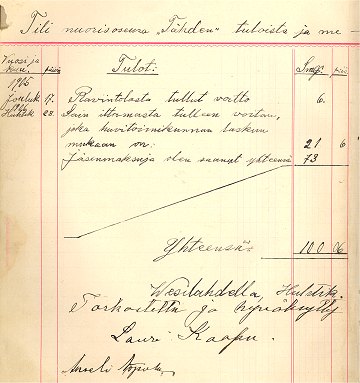 Tili nuorisoseura "Tähden" tuloista ja me-
Vuosi ja kuu. päivä Tulot: Smk: p:
1915
Jouluk 17. Ravintolasta tullut voitto 6.
Huhtik 28. Iltamasta tulleen voiton,
joka huvitoimikunnan laskun
mukaan on: 21 6
Jäsenmaksuja olen saanut yhteensä 73
Yhteensä: 100 06
Wesilahdella, Huhtik.
Tarkastettu ja hyväksytty
Lauri Kaapu.